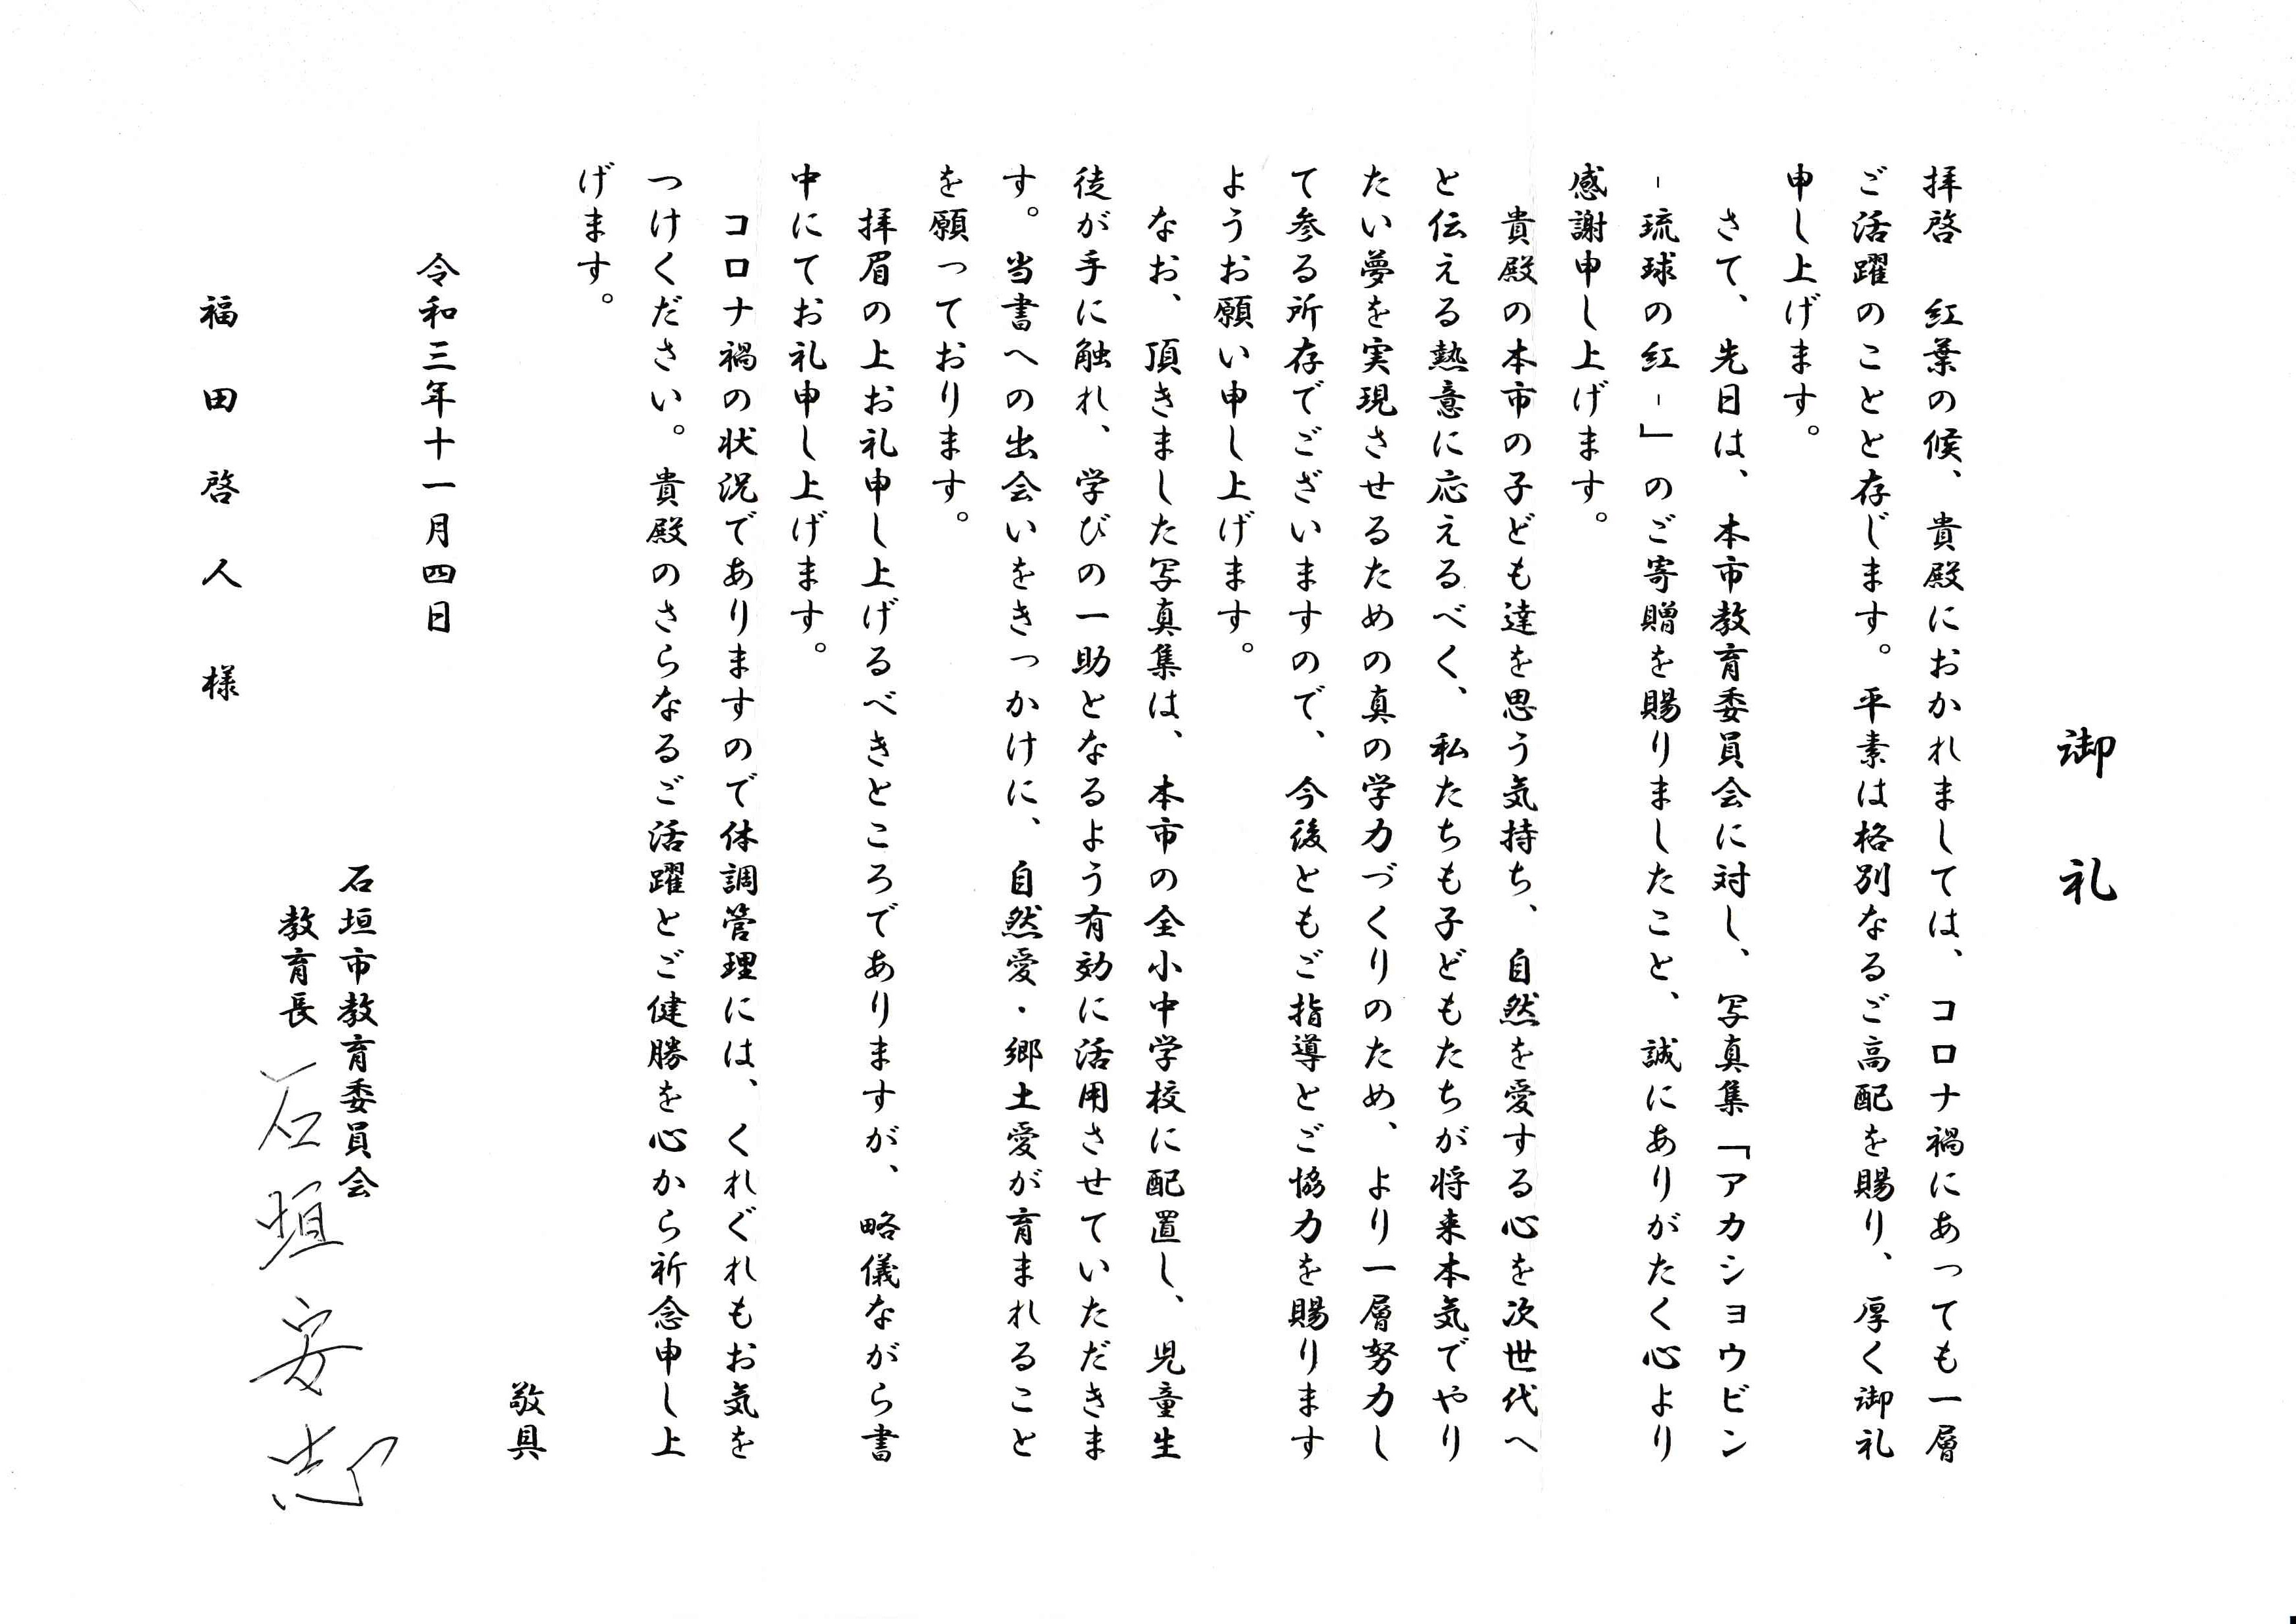 御礼
拝啓　紅葉の候、貴殿におかれましては、コロナ禍にあっても一層
ご活躍のことと存じます。平素は格別なるご高配を賜り、厚く御礼
申し上げます。
さて、先日は、本市教育委員会に対し、写真集「アカショウビン
-琉球の紅-」のご寄贈を賜りましたこと、誠にありがたく心より
感謝申し上げます。
貴殿の本市の子ども達を思う気持ち、自然を愛する心を次世代へ
と伝える熱意に応えるべく、私たちも子どもたちが将来本気でやり
たい夢を実現させるための真の学力づくりのため、より一層努力し
て参る所存でございますので、今後ともご指導とご協力を賜ります
ようお願い申し上げます。
なお、頂きました写真集は、本市の全小中学校に配置し、児童生
徒が手に触れ、学びの一助となるよう有効に活用させていただきま
す。当書への出会いをきっかけに、自然愛・郷土愛が育まれること
を願っております。
拝眉の上お礼申し上げるべきところでありますが、略儀ながら書
中にてお礼申し上げます。
コロナ禍の状況でありますので体調管理には、くれぐれもお気を
つけください。貴殿のさらなるご活躍とご健勝を心から祈念申し上
げます。
敬具
令和三年十一月四日
石垣市教育委員会
教育長 石垣安志
福田啓人様